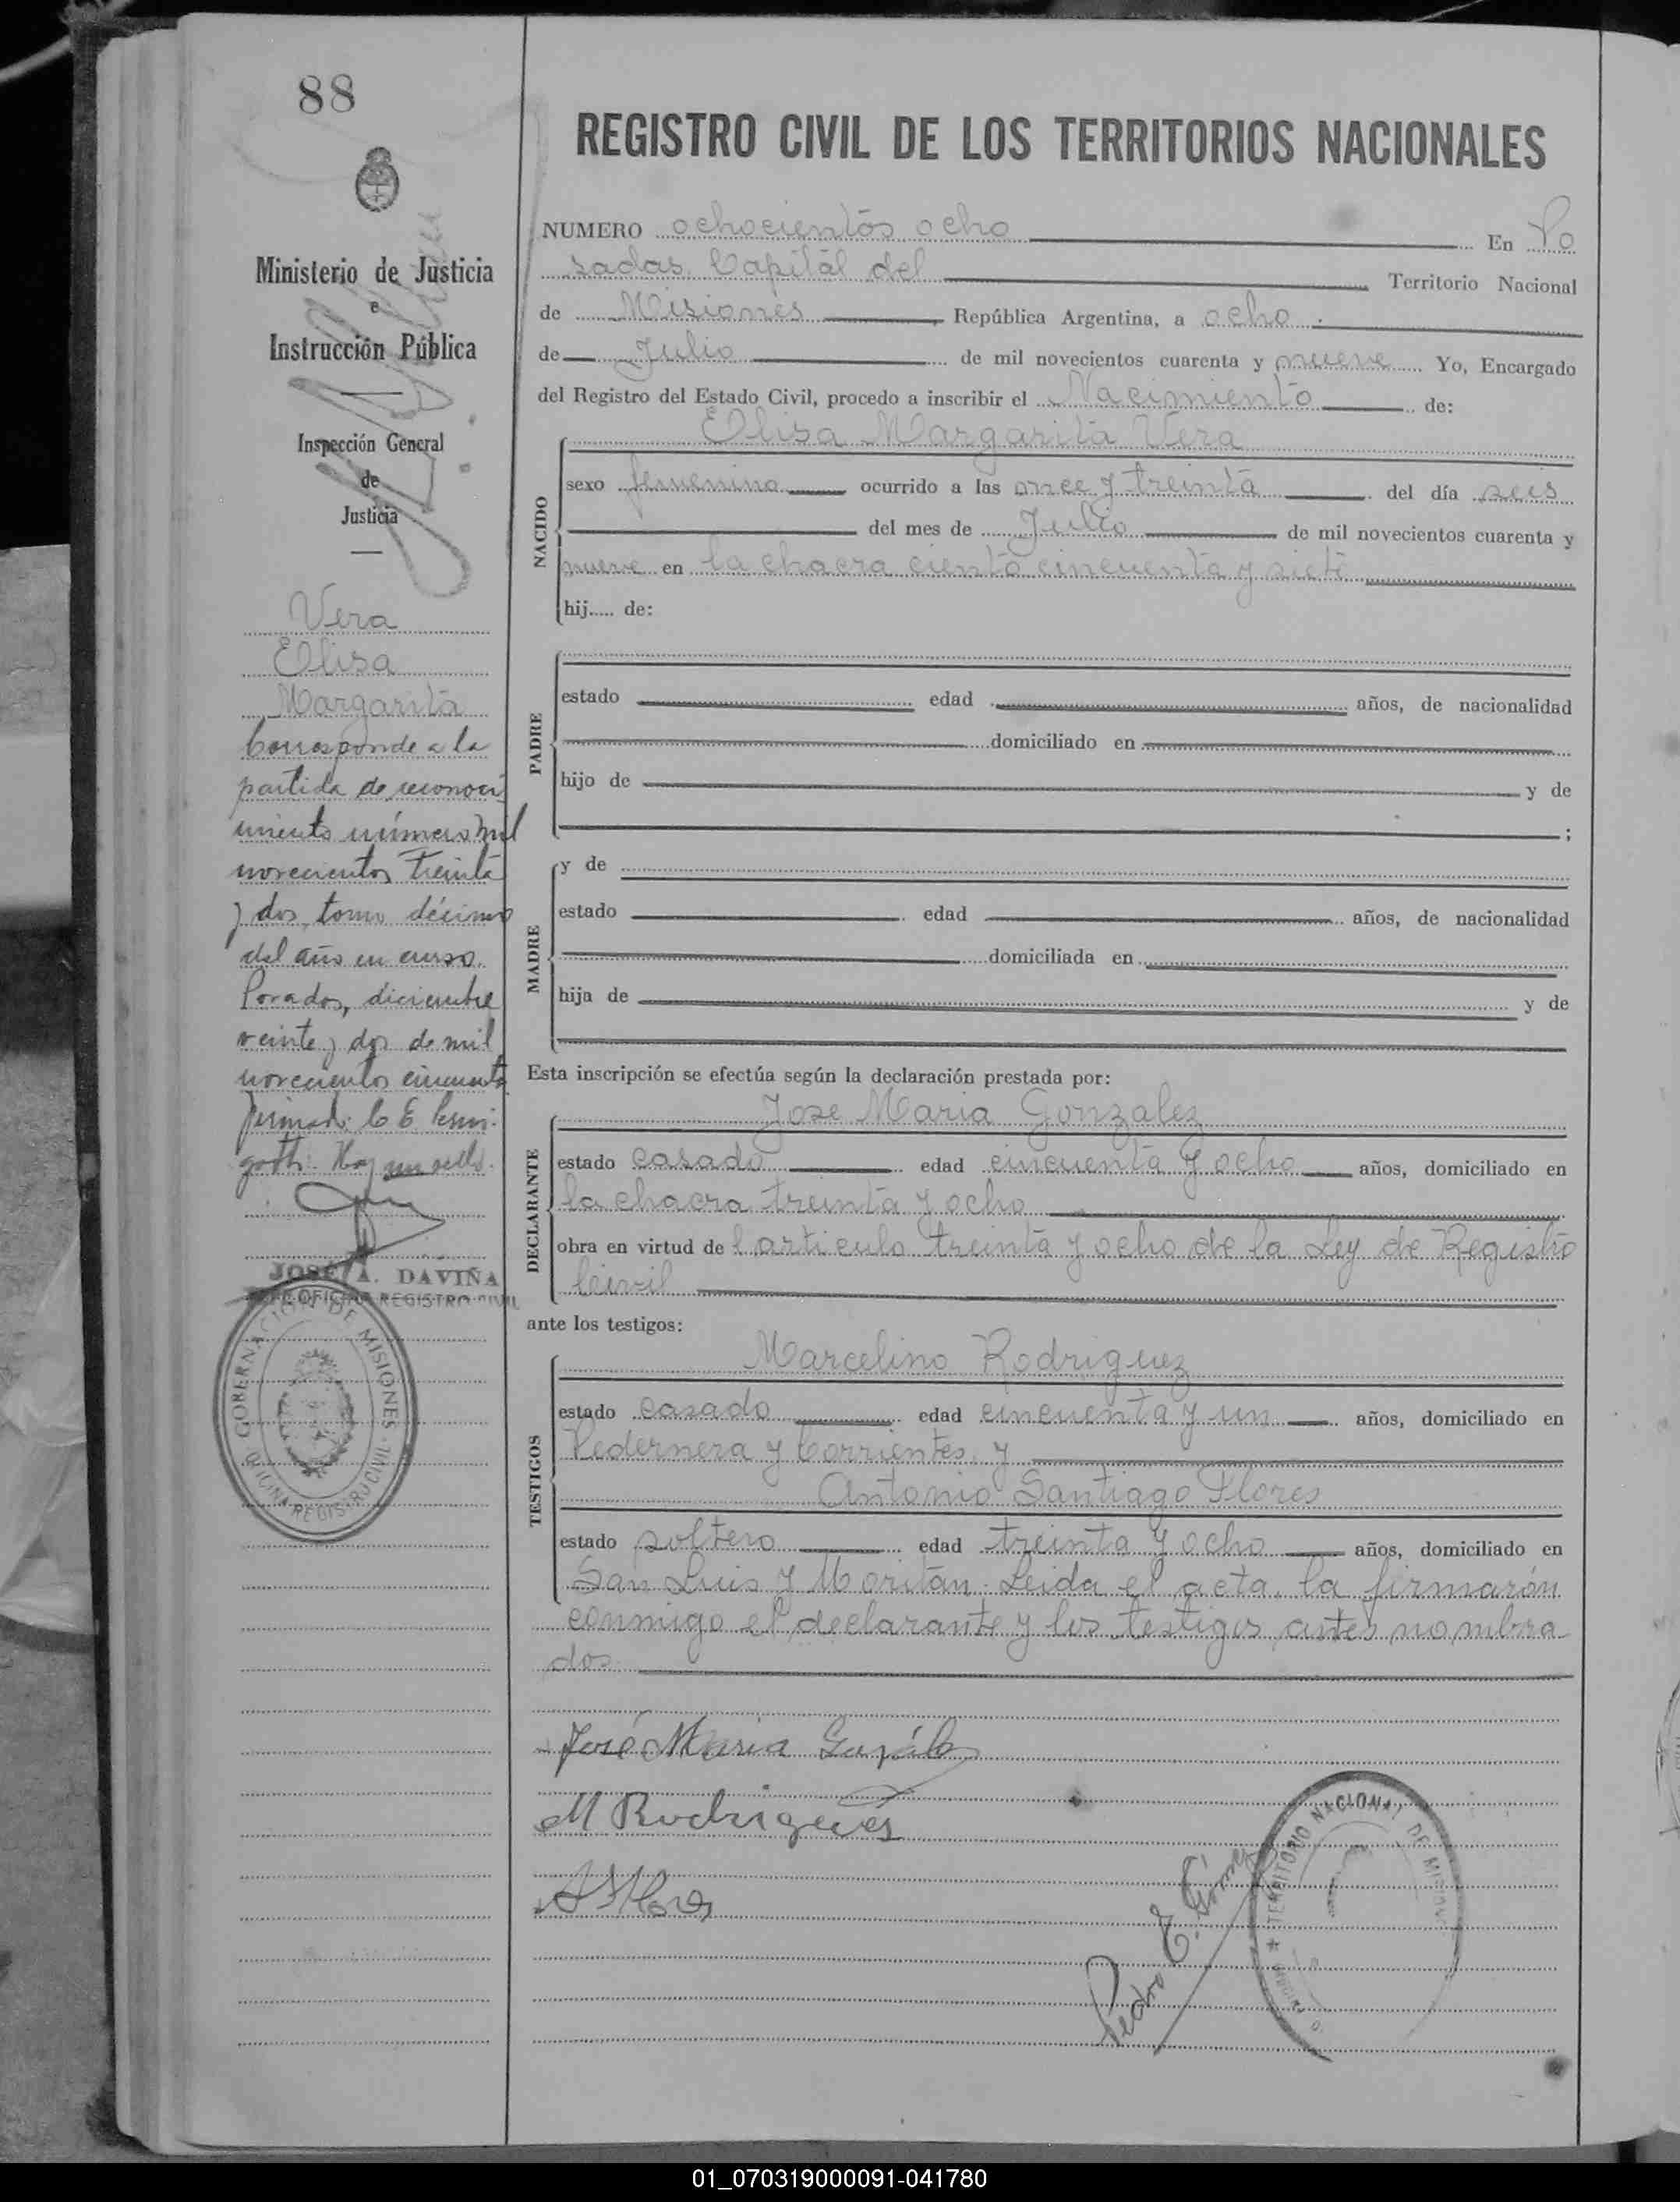 88
Ministerio de Justicia
e
Instrucción Pública
Inspección General
de
Justicia
Vera
Elisa
Margarita
Corresponde a la
partida de reconoci
miento número mil
novecientos treinta
y dos, tomo décimo
del año en curso.
Posadas, diciembre
veinte y dos de mil
novecientos cincuenta
firmado: C E
Hay un sello.
JOSÉ A. DAVIÑA
JEFE OFICINA REGISTRO CIVIL
GOBERNACION DE MISIONES
OFICINA REGISTRO CIVIL
REGISTRO CIVIL DE LOS TERRITORIOS NACIONALES
NUMERO ochocientos ocho En Po
sadas Capital del Territorio Nacional
de Misiones República Argentina, a ocho
de Julio de mil novecientos cuarenta y nueve Yo, Encargado
del Registro del Estado Civil, procedo a inscribir el Nacimiento de:
NACIDO
Elisa Margarita Vera
sexo femenino ocurrido a las once y treinta del día seis
del mes de Julio de mil novecientos cuarenta y
nueve en la chacra ciento cincuenta y siete
hij..... de:
PADRE
estado edad años, de nacionalidad
domiciliado en
hijo de y de
;
MADRE
y de
estado edad años, de nacionalidad
domiciliada en
hija de y de
Esta inscripción se efectúa según la declaración prestada por:
DECLARANTE
Jose Maria Gonzalez
estado casado edad cincuenta y ocho años, domiciliado en
la chacra treinta y ocho
obra en virtud de l articulo treinta y ocho de la Ley de Registro
Civil
ante los testigos:
TESTIGOS
Marcelino Rodriguez
estado casado edad cincuenta y un años, domiciliado en
Pedernera y Corrientes, y
Antonio Santiago Flores
estado soltero edad treinta y ocho años, domiciliado en
San Luis y Moritán. Leida el acta, la firmarón
conmigo el declarante y los testigos antes nombra
dos
José Maria Gonzále
M Rodrigues
A S Flores
Pedro E. Gómez
TERRITORIO NACIONAL DE MISIONES
01_070319000091-041780